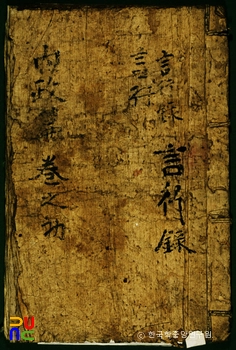 言行錄
言行錄
言行
內政篇 卷之初
© 한국학중앙연구원